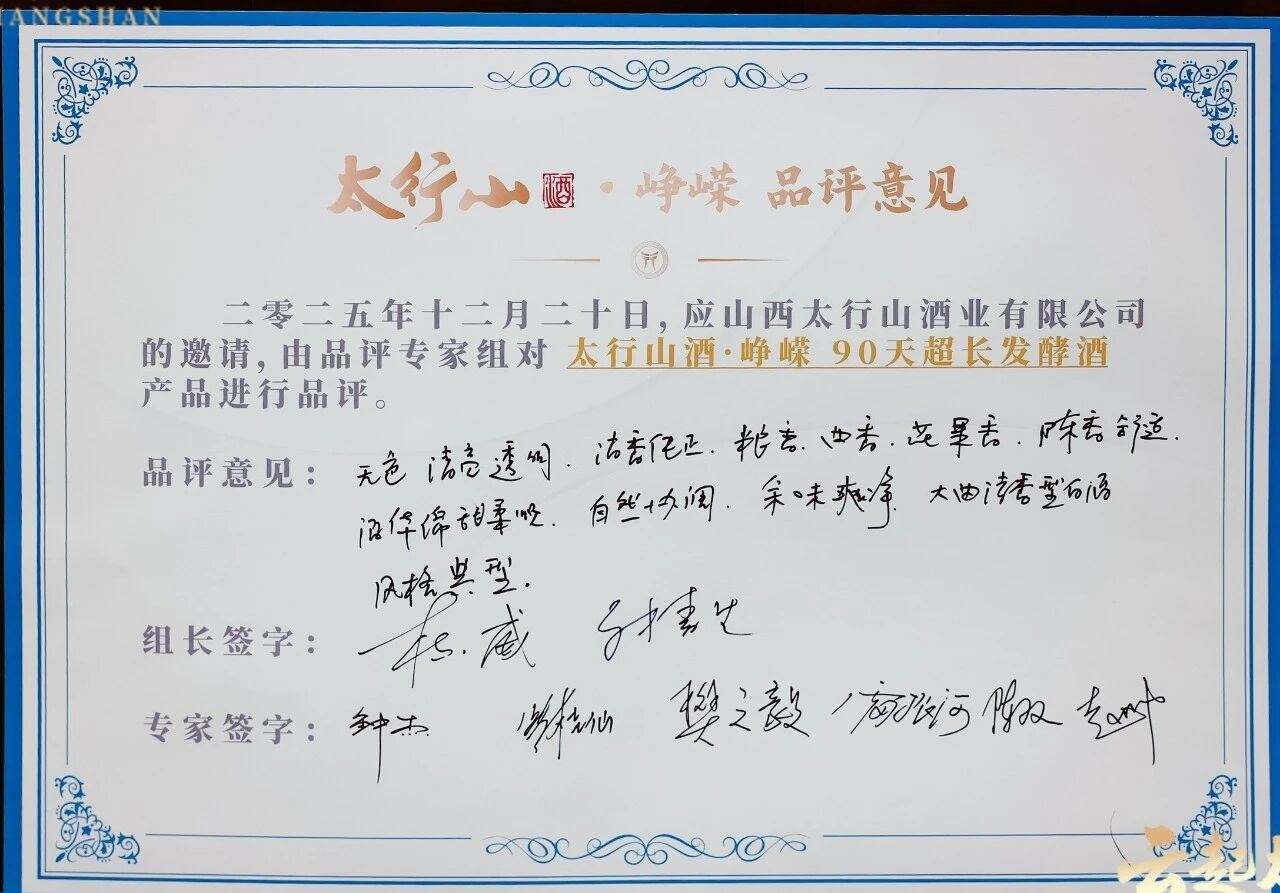 HANGSHAN
太行山酒·峥嵘 品评意见
二零二五年十二月二十日,应山西太行山酒业有限公司
的邀请,由品评专家组对 太行山酒·峥嵘 90天超长发酵酒
产品进行品评。
品评意见: 无色清亮透明、清香纯正、粮香、曲香、花果香、陈香舒适、
酒体绵甜柔顺、自然协调、余味爽净、大曲清香型白酒
风格典型.
组长签字: 杜威
专家签字: 钟杰 樊之毅 陈双
云起